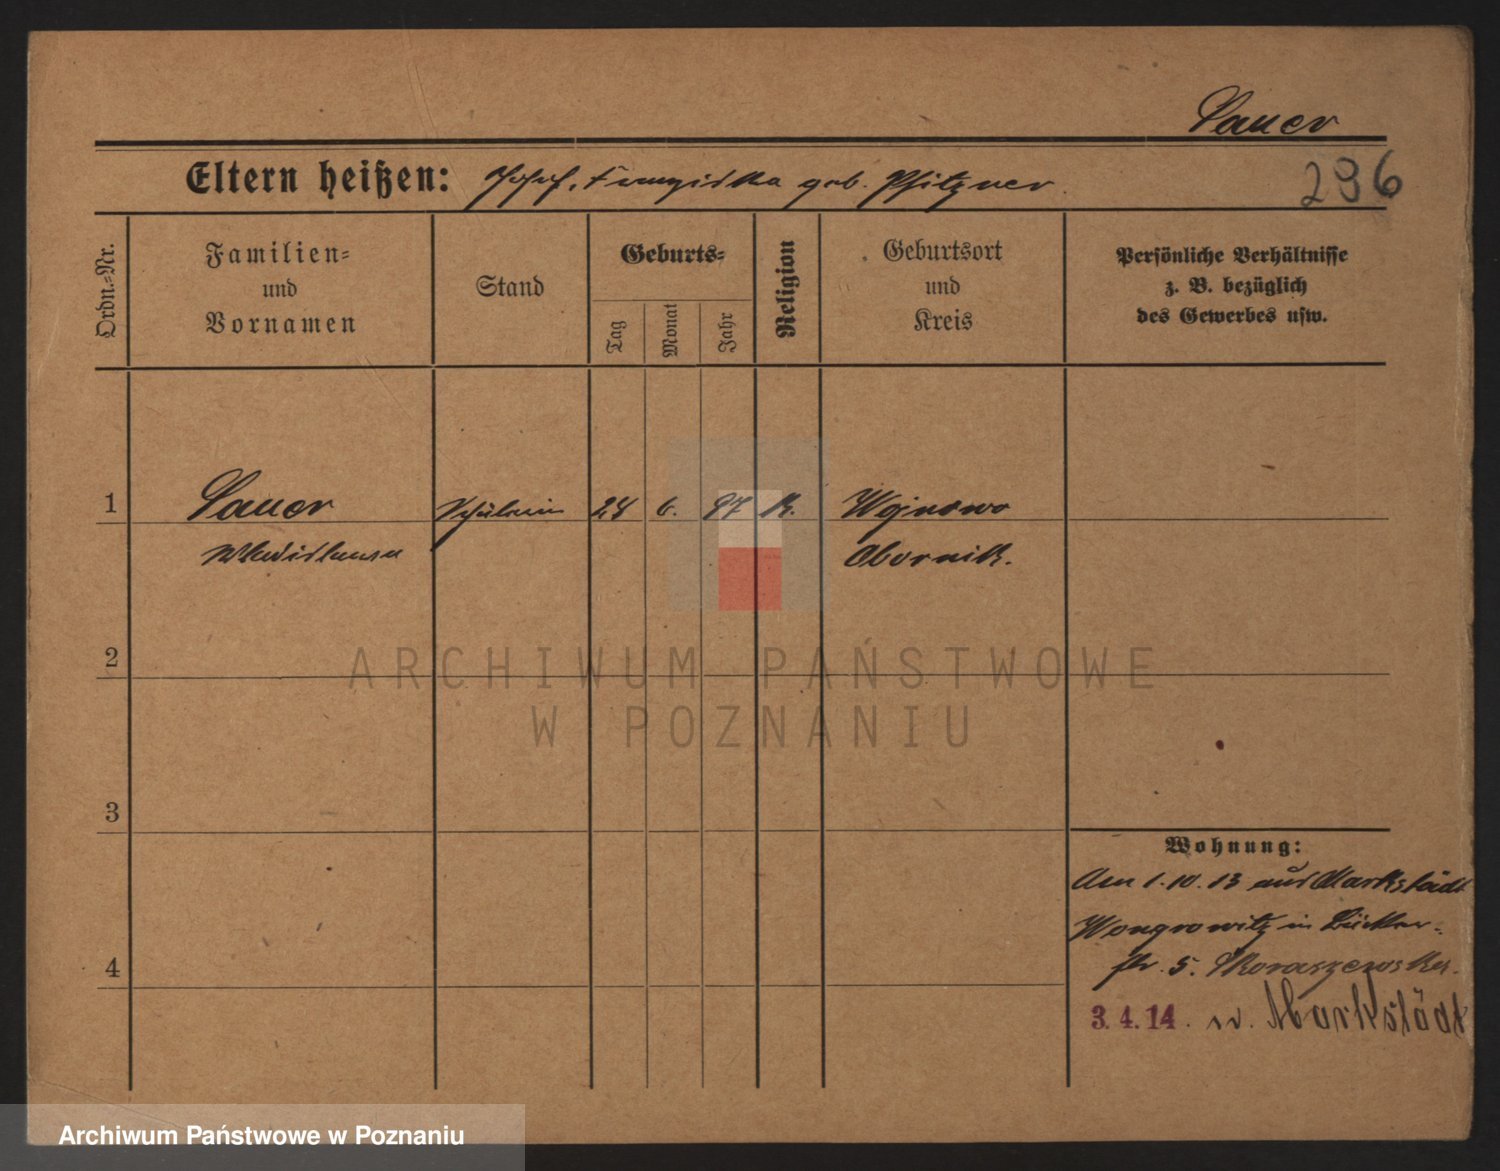 Sauer
296
Eltern heißen: Josef, Franziska geb. Pfitzner.
Ordn.-Nr.
Familien-
und
Vornamen
Stand
Geburts-
Tag
Monat
Jahr
Religion
Geburtsort
und
Kreis
Persönliche Verhältnisse
z. B. bezüglich
des Gewerbes usw.
1
Sauer
Schülerin
24
6.
97
K.
Wojnowo
Wladislawa
Obornik.
2
3
4
Wohnung:
Am 1.10.13 aus Markstädt
Wongrowitz in Bücker-
str. 5. Skoraszewska.
3. 4. 14. n. Markstädt
ARCHIWUM PAŃSTWOWE
W POZNANIU
Archiwum Państwowe w Poznaniu